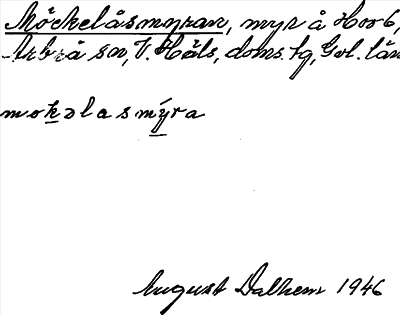 Möckelåsmyran, myr å Hov 6,
Arbrå sn, V. Häls. doms. tg, Gvl. län
mokəlasmýra
August Dalhem 1946